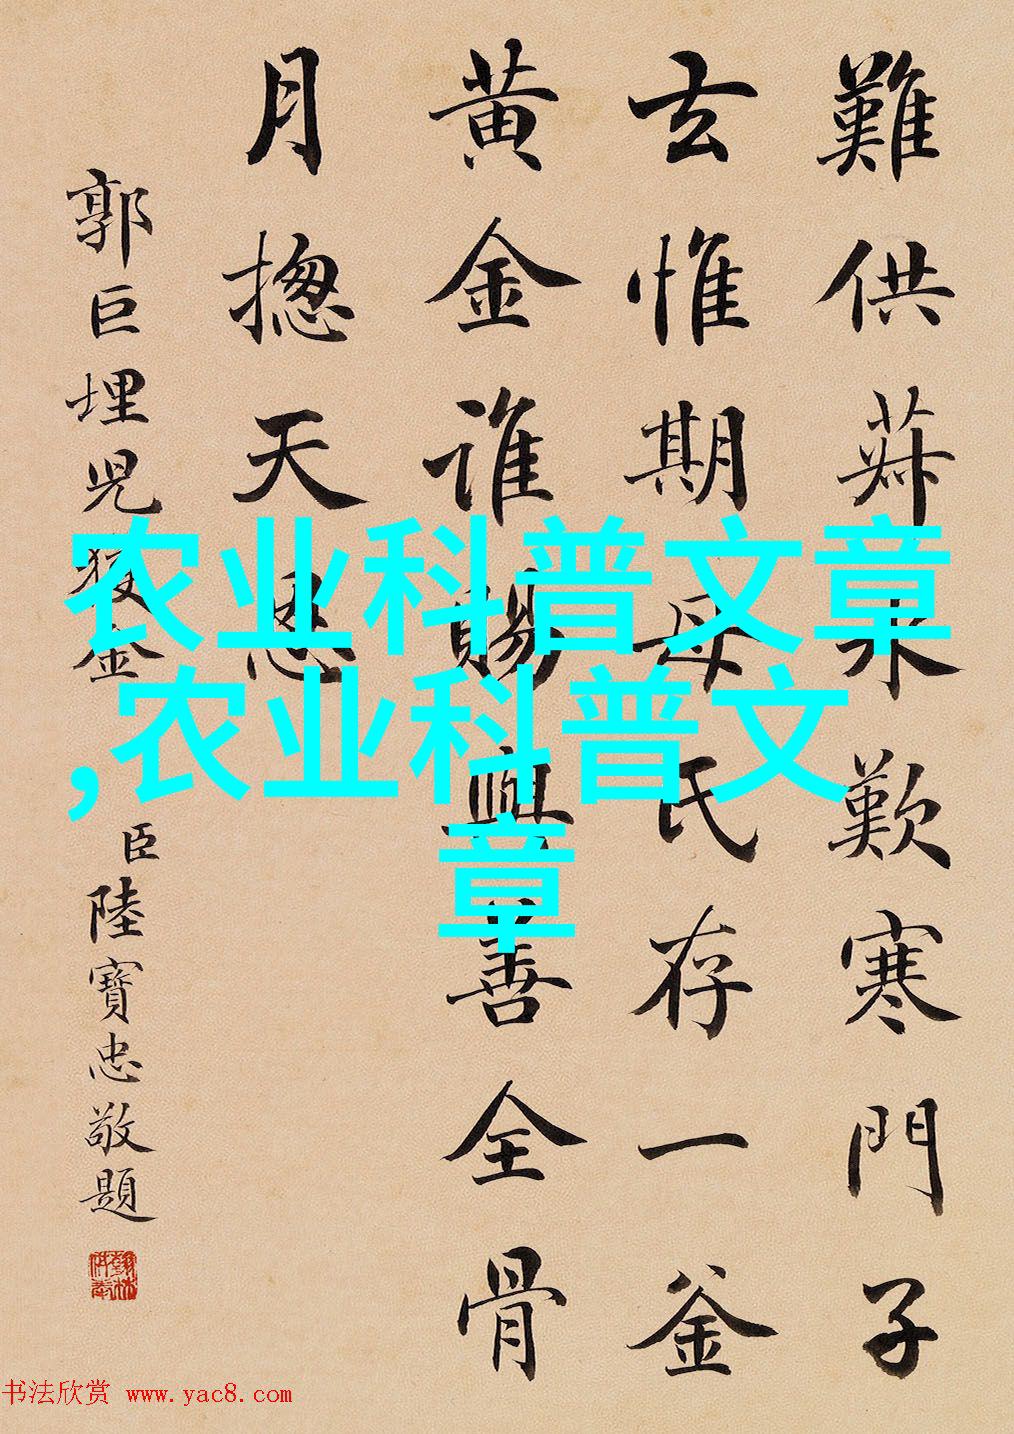 難供菽水歎寒門子
玄惟期母氏存一釜
黄金谁賜與善全骨
月揔天恩
郭巨埋児獲金
臣陸寶忠敬題
农业科普文章
,农业科普文
章
书法欣赏 www.yac8.com